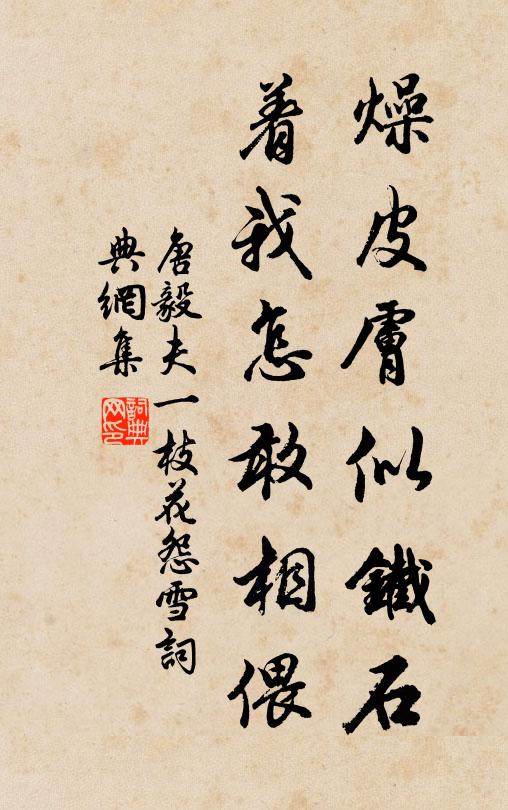 燥皮膚似鐵石
着我怎敢相偎
唐毅夫一枝花怨雪詞
典網集
詞典网印